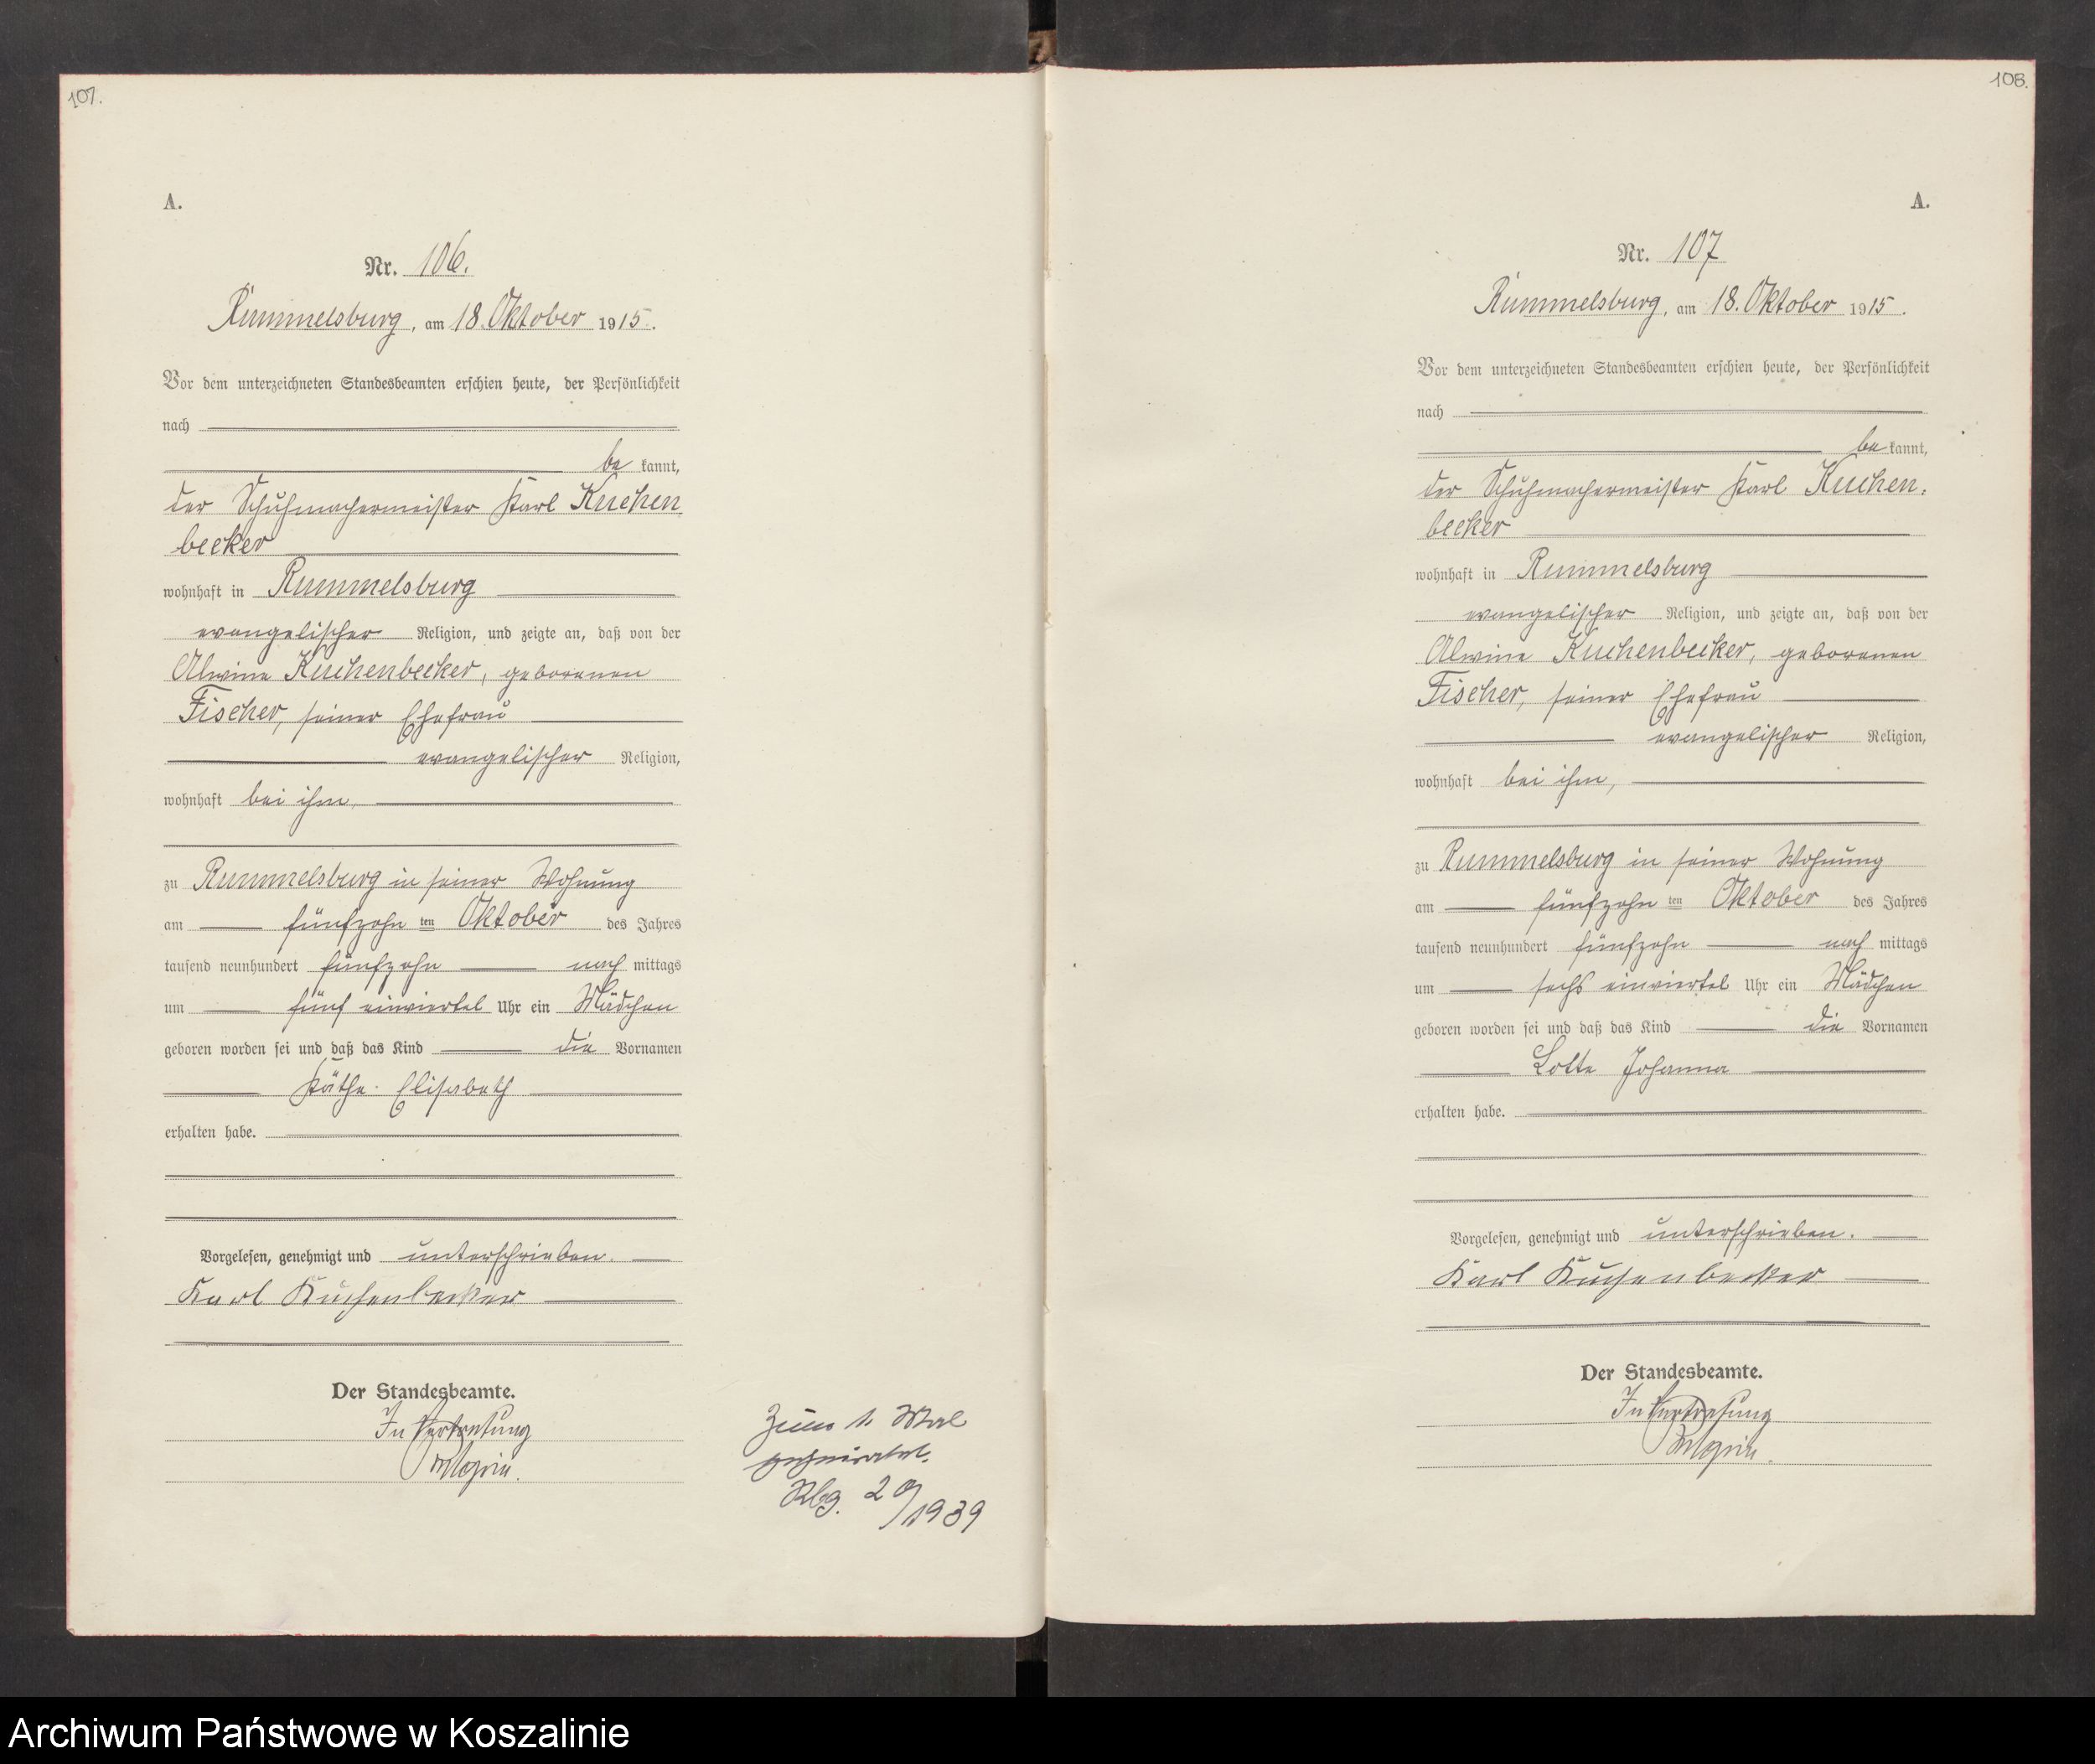 107.
A.
Nr. 106.
Rummelsburg, am 18. Oktober 1915.
Vor dem unterzeichneten Standesbeamten erschien heute, der Persönlichkeit
nach
be kannt,
der Schuhmachermeister Karl Kuchen
becker
wohnhaft in Rummelsburg
evangelischer Religion, und zeigte an, daß von der
Alwine Kuchenbecker, geborenen
Fischer, seiner Ehefrau
evangelischer Religion,
wohnhaft bei ihm,
zu Rummelsburg in seiner Wohnung
am fünfzehn ten Oktober des Jahres
tausend neunhundert fünfzehn nach mittags
um fünf einviertel Uhr ein Mädchen
geboren worden sei und daß das Kind die Vornamen
Käthe Elisabeth
erhalten habe.
Vorgelesen, genehmigt und unterschrieben.
Karl Kuchenbecker
Der Standesbeamte.
In Vertretung
Zum 1. Mal
geheiratet.
Rbg. 2 /1939
108.
A.
Nr. 107
Rummelsburg, am 18. Oktober 1915.
Vor dem unterzeichneten Standesbeamten erschien heute, der Persönlichkeit
nach
be kannt,
der Schuhmachermeister Karl Kuchen-
becker
wohnhaft in Rummelsburg
evangelischer Religion, und zeigte an, daß von der
Alwine Kuchenbecker, geborenen
Fischer, seiner Ehefrau
evangelischer Religion,
wohnhaft bei ihm,
zu Rummelsburg in seiner Wohnung
am fünfzehn ten Oktober des Jahres
tausend neunhundert fünfzehn nach mittags
um sechs einviertel Uhr ein Mädchen
geboren worden sei und daß das Kind die Vornamen
Lotte Johanna
erhalten habe.
Vorgelesen, genehmigt und unterschrieben.
Karl Kuchenbecker
Der Standesbeamte.
In Vertretung
Archiwum Państwowe w Koszalinie